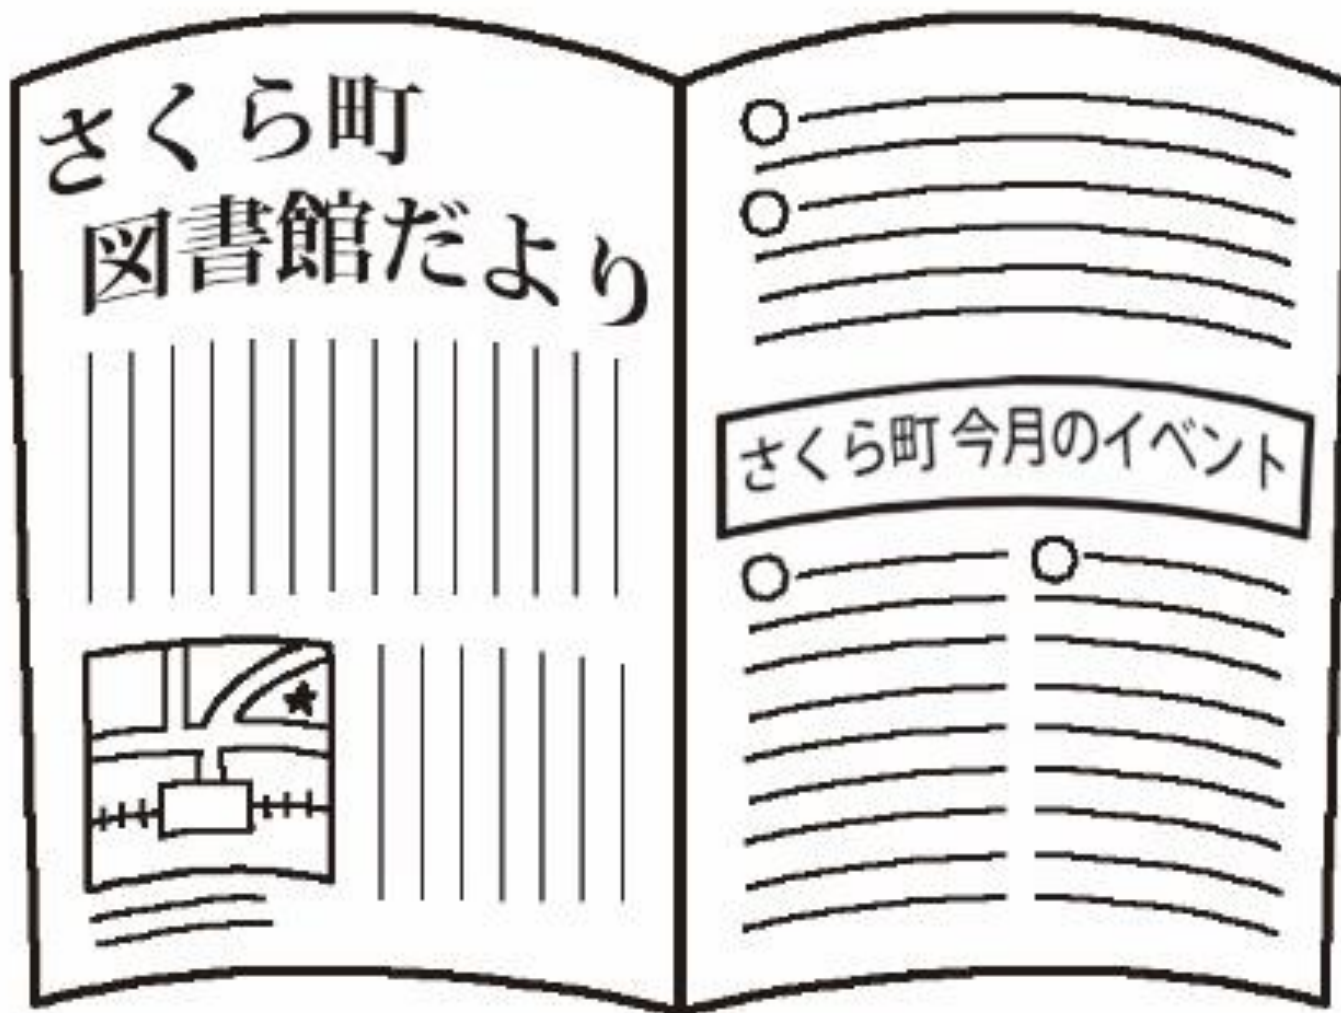 さくら町
図書館だより
さくら町 今月のイベント